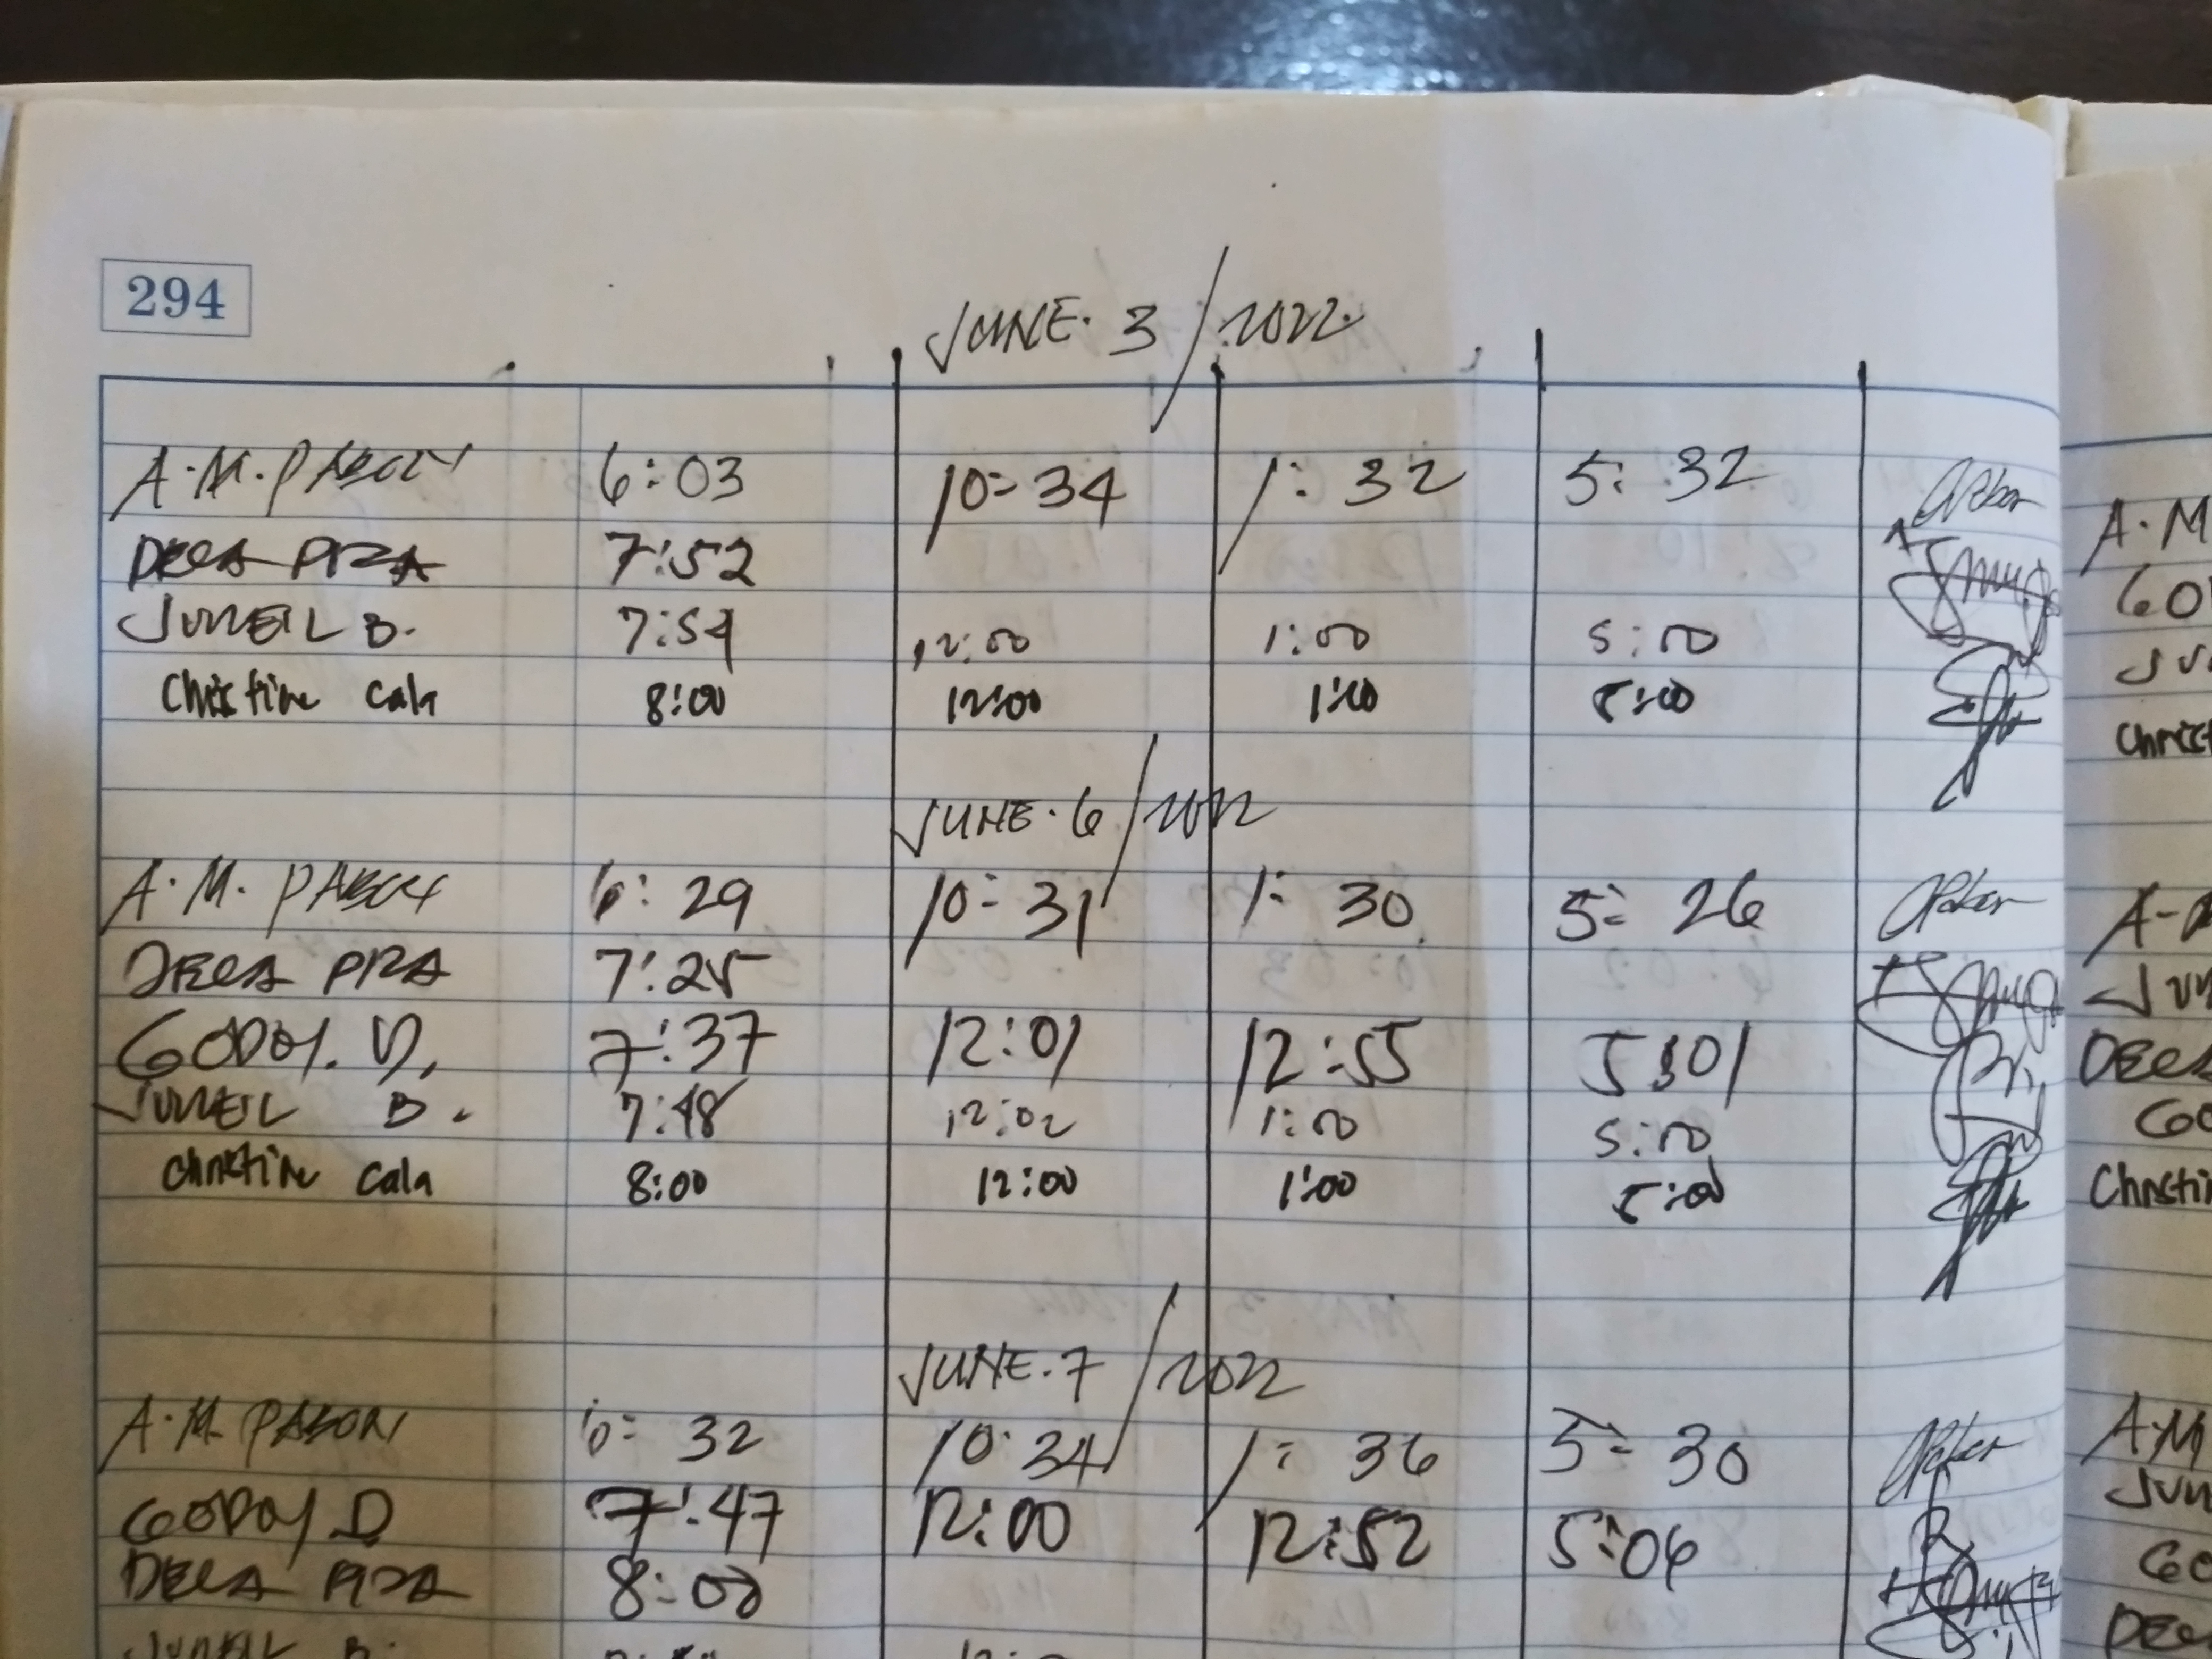 294
JUNE. 3/2022.
A.M. PABON 6:03 10:34 1:32 5:32
DELA PIZA 7:52
JUNEIL B. 7:54 12:00 1:00 5:00
Christine Cala 8:00 12:00 1:00 5:00
JUNE. 6/2022
A.M. PABON 6:29 10:31 1:30 5:26
DELA PIZA 7:25
GODOY. D. 7:37 12:01 12:55 5:01
JUNEIL B. 7:48 12:02 1:00 5:00
Christine Cala 8:00 12:00 1:00 5:00
JUNE. 7/2022
A.M. PABON 6:32 10:34 1:36 5:30
GODOY D 7:47 12:00 12:52 5:06
DELA PIZA 8:00
JUNEIL B.
A.M
JUN
DELA
GO
Christi
A.M
JUN
GO
DELA